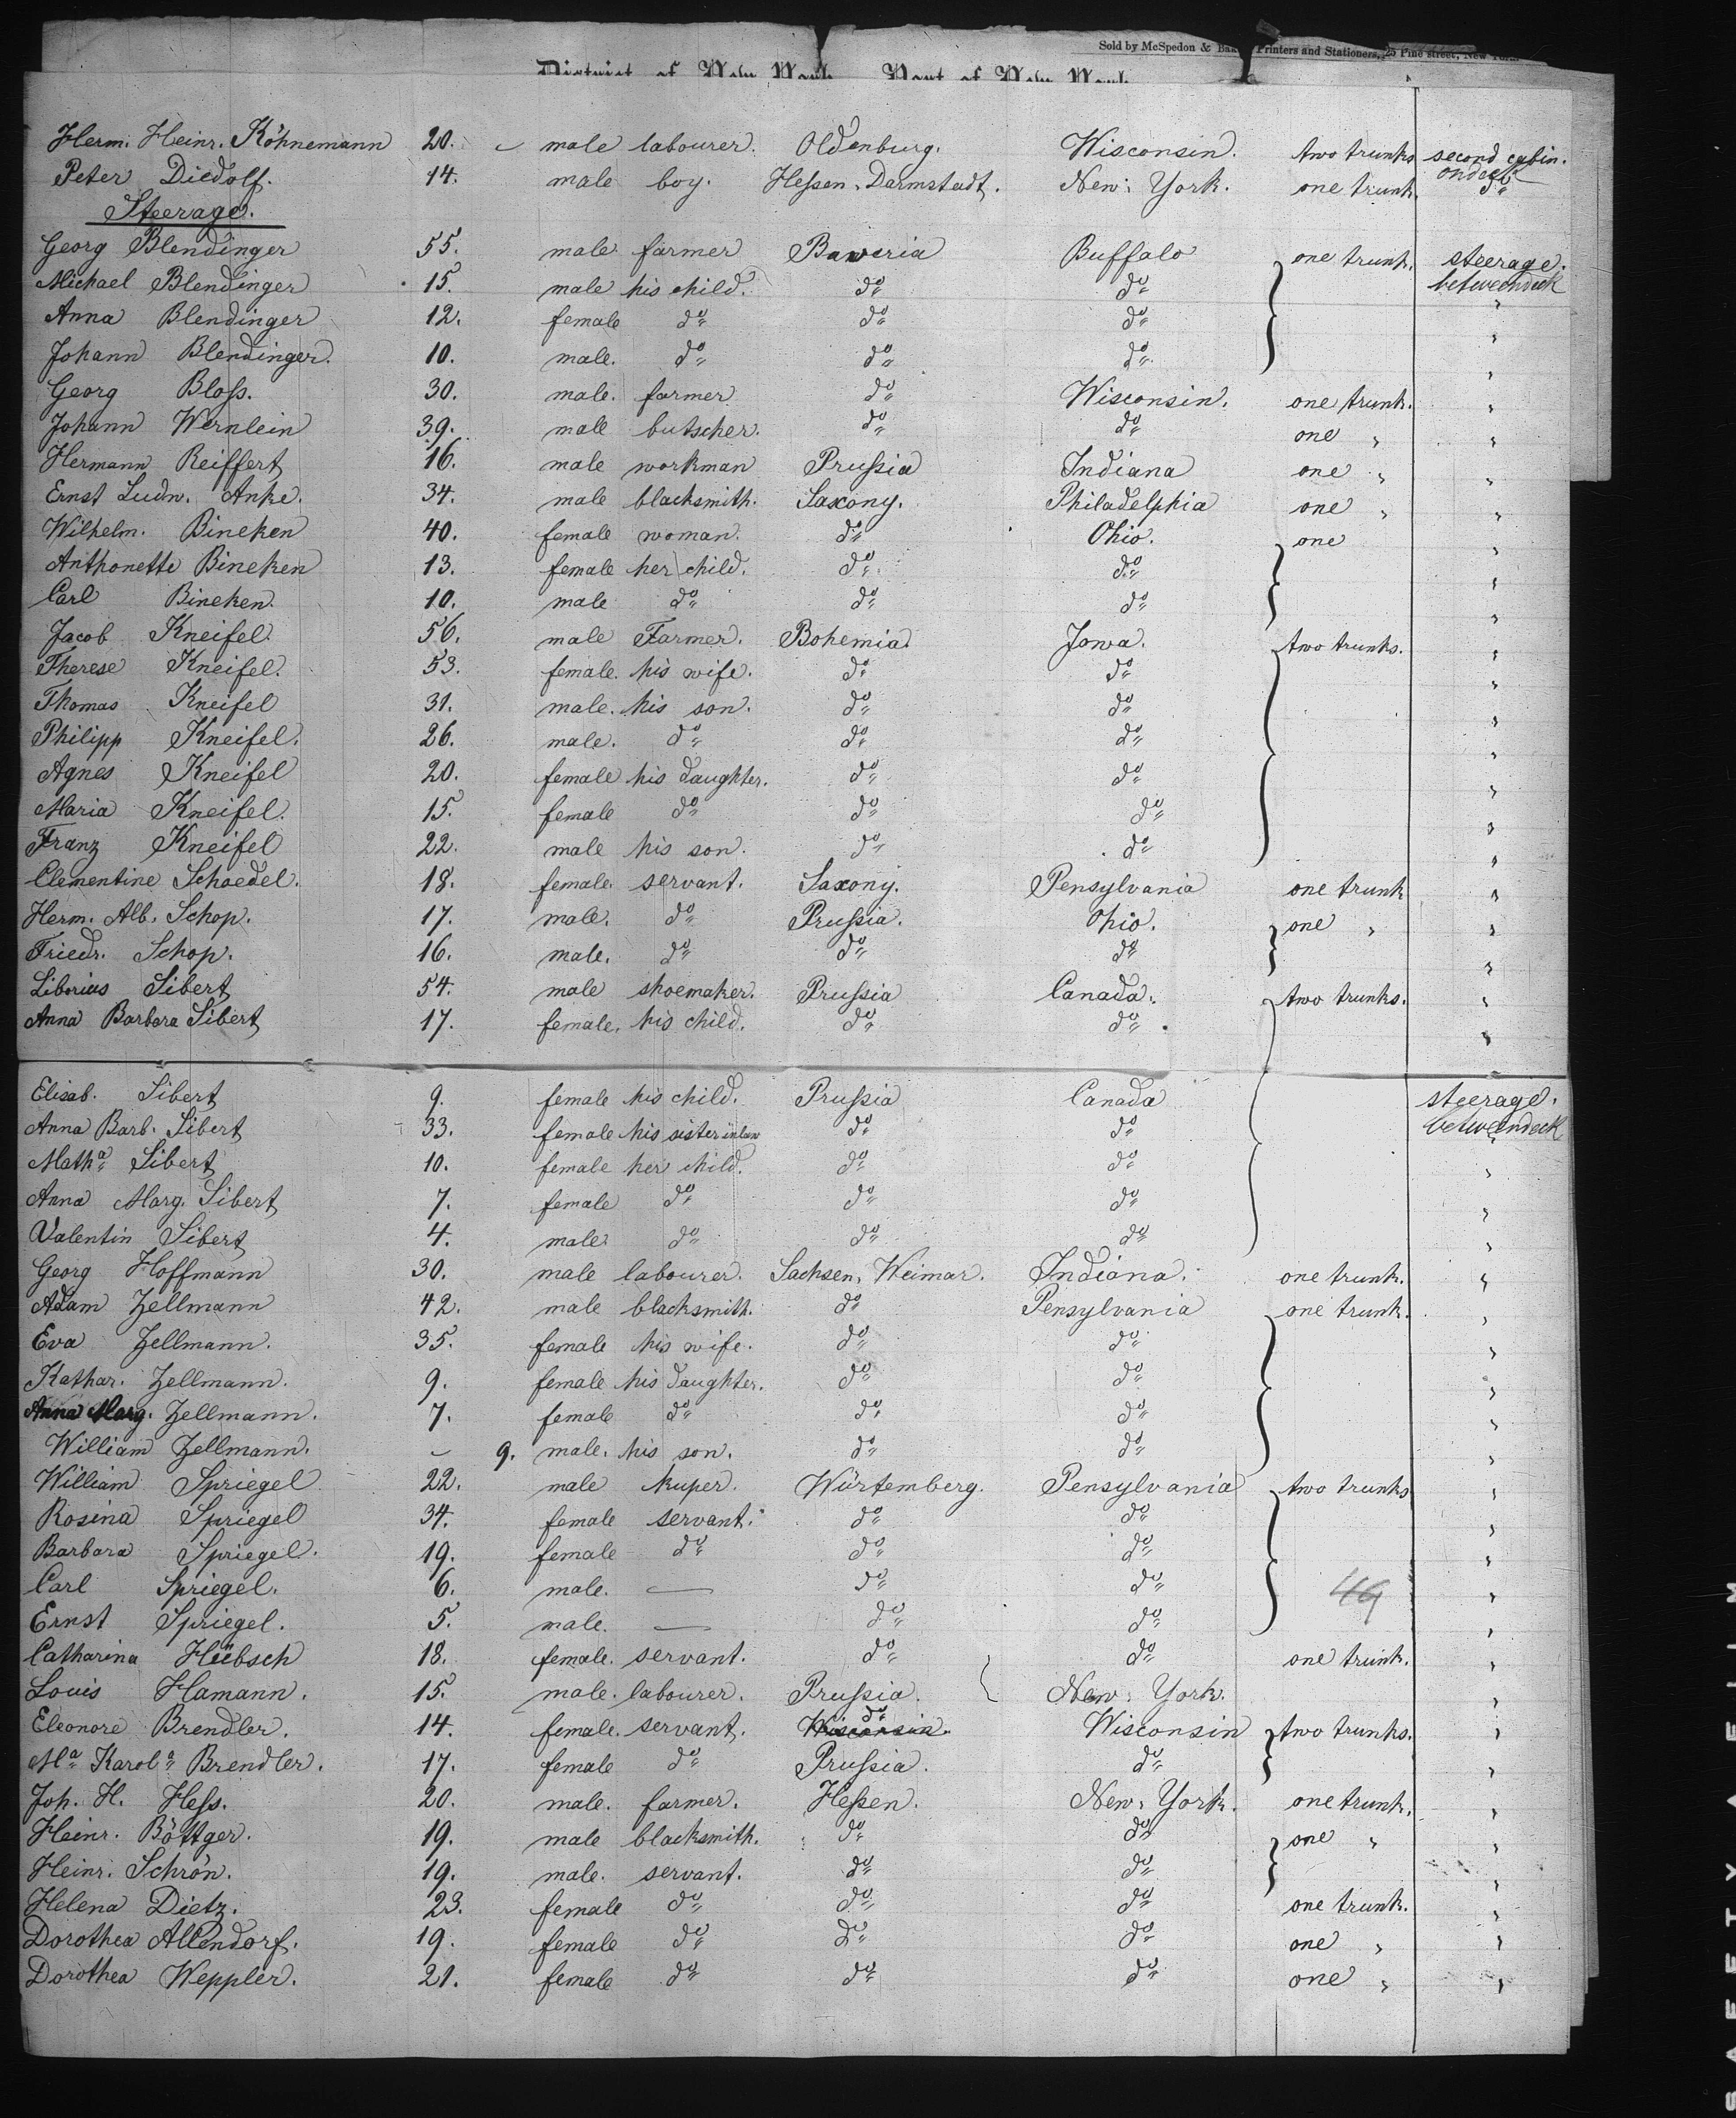 Sold by McSpedon & Baker, Printers and Stationers, 25 Pine street, New York.
District of New York Port of New York
Herm. Heinr. Köhnemann 20. male labourer. Oldenburg. Wisconsin. two trunks second cabin.
ondeck
Peter Diedolf. 14. male boy. Heßen. Darmstadt. New. York. one trunk. do
Steerage.
Georg Blendinger 55. male farmer Baveria Buffalo one trunk. steerage.
Michael Blendinger 15. male his child. do do betweendeck
Anna Blendinger 12. female do do do "
Johann Blendinger. 10. male. do do do "
Georg Bloß. 30. male. farmer do Wisconsin. one trunk. "
Johann Wernlein 39. male butscher. do do one " "
Hermann Reiffert 16. male workman Prußia Indiana one " "
Ernst Ludw. Anke. 34. male blacksmith. Saxony. Philadelphia one " "
Wilhelm. Bineken 40. female woman. do Ohio. one "
Anthonette Bineken 13. female her child. do do "
Carl Bineken. 10. male do do do "
Jacob Kneifel. 56. male Farmer. Bohemia Jowa. two trunks. "
Therese Kneifel. 53. female. his wife. do do "
Thomas Kneifel 31. male. his son. do do "
Philipp Kneifel. 26. male. do do do "
Agnes Kneifel 20. female his daughter. do do "
Maria Kneifel. 15. female do do do "
Franz Kneifel 22. male his son. do do "
Clementine Schoedel. 18. female. servant. Saxony. Pensylvania one trunk "
Herm. Alb. Schop. 17. male. do Prußia. Ohio. one " "
Friedr. Schop. 16. male. do do do "
Liborius Sibert 54. male shoemaker. Prußia Canada. two trunks. "
Anna Barbara Sibert 17. female. his child. do do "
Elisab. Sibert 9. female his child. Prußia Canada steerage.
Anna Barb. Sibert 33. female his sister inlaw do do betweendeck
Matha Sibert 10. female her child. do do "
Anna Marg. Sibert 7. female do do do "
Valentin Sibert 4. male do do do "
Georg Hoffmann 30. male labourer. Sachsen. Weimar. Indiana. one trunk. "
Adam Zellmann 42. male blacksmith. do Pensylvania one trunk. "
Eva Zellmann. 35. female his wife. do do "
Kathar. Zellmann. 9. female his daughter. do do "
Anna Marg. Zellmann. 7. female do do do "
William Zellmann. 9. male. his son. do do "
William Spriegel 22. male kuper. Würtemberg. Pensylvania two trunks "
Rosina Spriegel 34. female servant. do do "
Barbara Spriegel. 19. female do do do "
Carl Spriegel. 6. male. — do do 49 "
Ernst Spriegel. 5. male. — do do "
Catharina Hübsch 18. female. servant. do do one trunk. "
Louis Hamann. 15. male. labourer. Prußia. New. York. "
Eleonore Brendler. 14. female. servant. Wisconsin. do Wisconsin two trunks. "
Ma Karola Brendler. 17. female do Prußia. do "
Joh. H. Heß. 20. male. farmer. Heßen. New. York. one trunk. "
Heinr. Böttger. 19. male blacksmith. do do one " "
Heinr. Schrön. 19. male. servant. do do "
Helena Dietz. 23. female do do do one trunk. "
Dorothea Allendorf. 19. female do do do one " "
Dorothea Weppler. 21. female do do do one " "